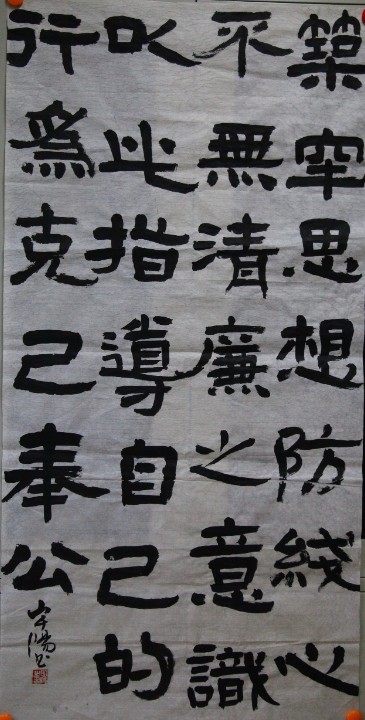 築牢思想防綫心
不無清廉之意識
以此指導自己的
行爲克己奉公